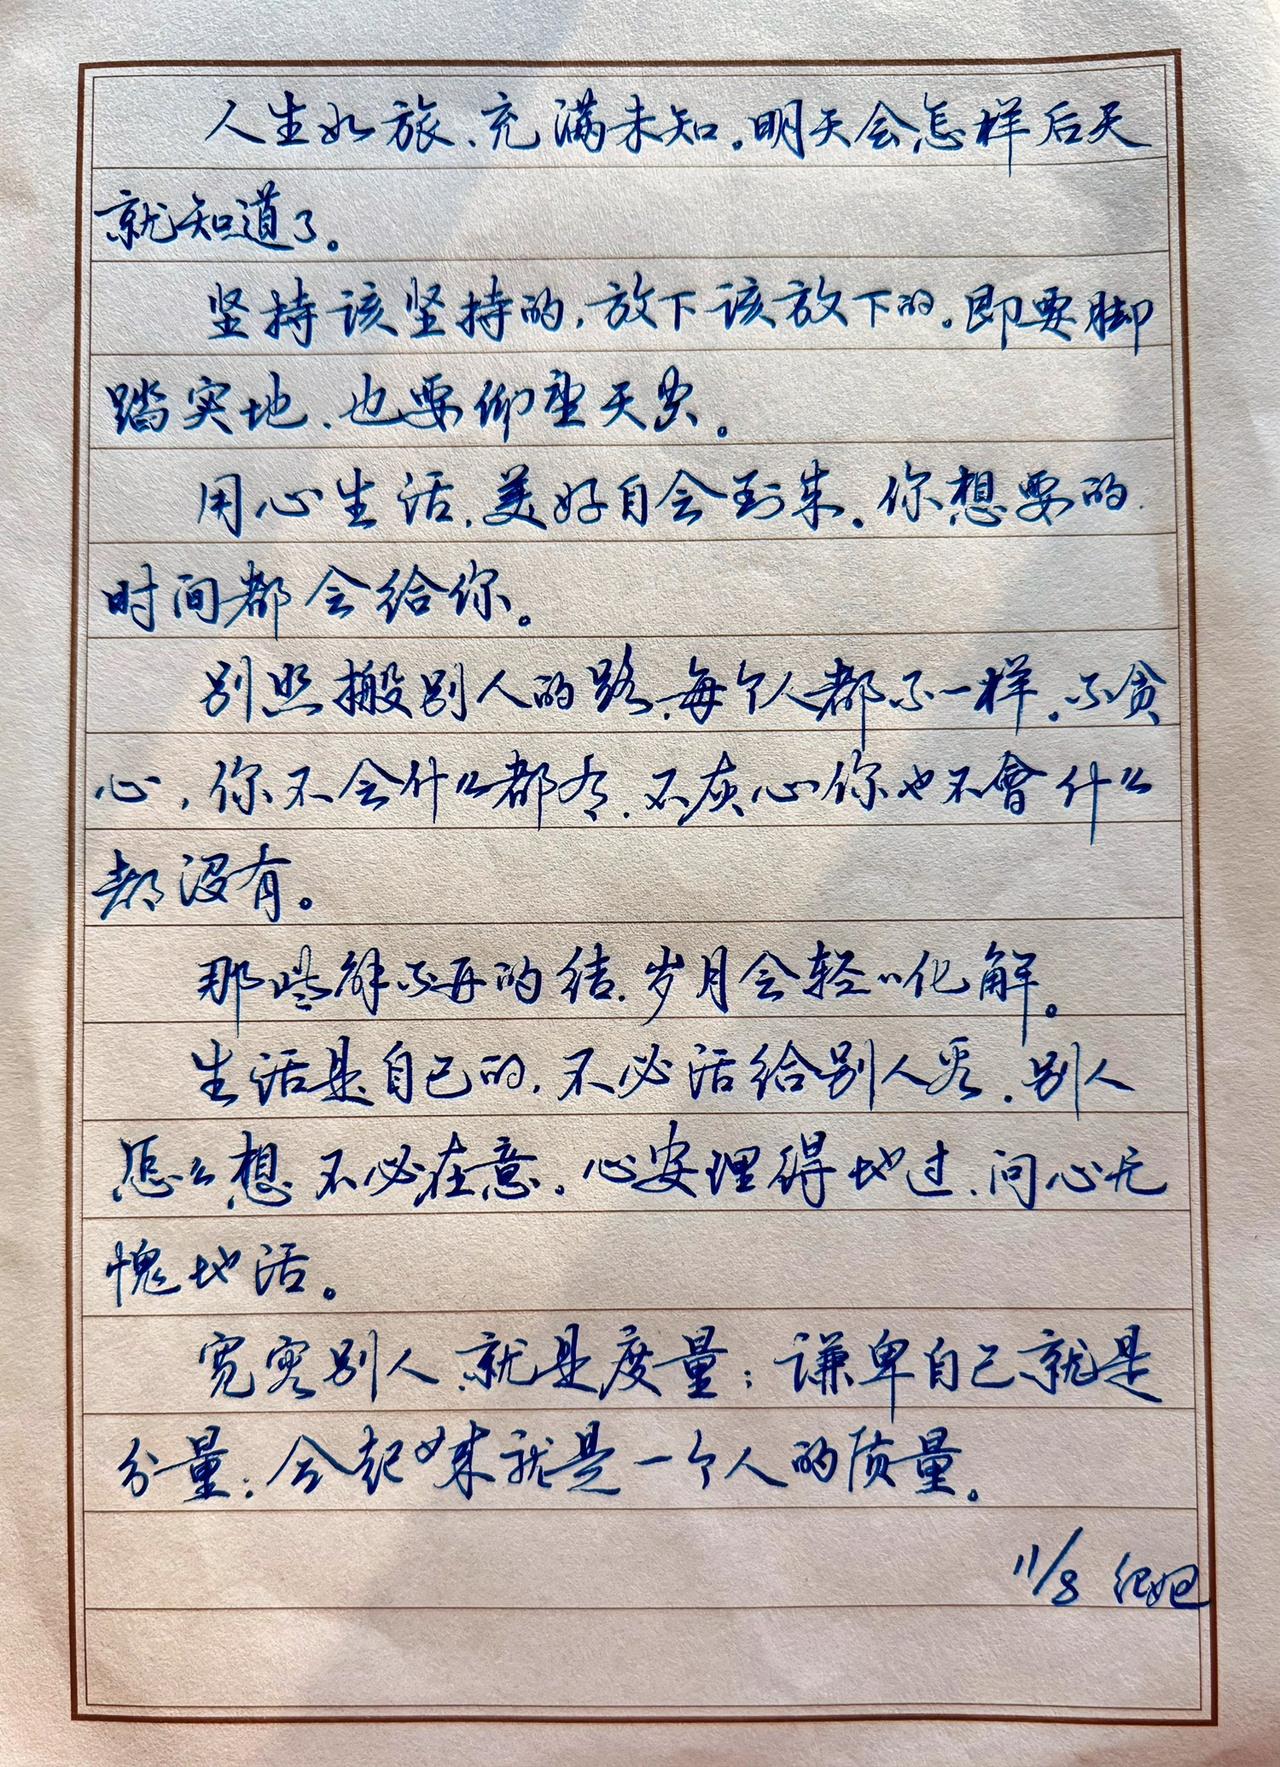 人生如旅、充满未知。明天会怎样后天
就知道了。
坚持该坚持的，放下该放下的。即要脚
踏实地、也要仰望天空。
用心生活，美好自会到来。你想要的
时间都会给你。
别照搬别人的路，每个人都不一样。不贪
心，你不会什么都有，不灰心你也不會什么
都没有。
那些解不开的结，岁月会轻轻化解。
生活是自己的，不必活给别人看，别人
怎么想 不必在意。心安理得地过，问心无
愧地活。
宽容别人、就是度量；谦卑自己就是
分量；合起来就是一个人的质量。
11/8